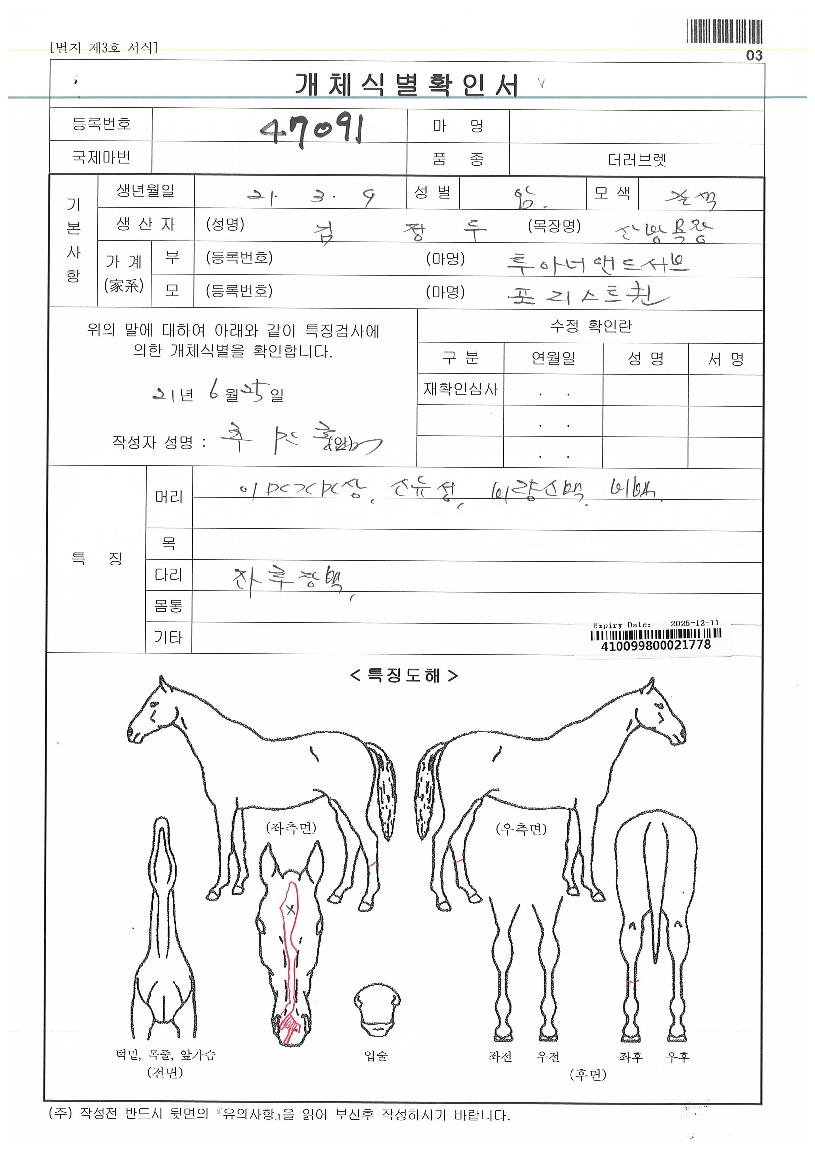 [별지 제3호 서식]
03
개체식별확인서
등록번호 47091 마 명
국제마번 품 종 더러브렛
기본사항
생년월일 21. 3. 9 성 별 암. 모 색 갈색
생 산 자 (성명) 김 장 두 (목장명)
가 계 (家系) 부 (등록번호) (마명) 투아너앤드서브
모 (등록번호) (마명) 포리스트퀸
위의 말에 대하여 아래와 같이 특징검사에
의한 개체식별을 확인합니다.
21년 6월 25일
작성자 성명 : (인)
수정 확인란
구 분 연월일 성 명 서 명
재확인심사 . .
. .
. .
특 징
머리 비량신백, 비백,
목
다리 좌후장백,
몸통
기타
Expiry Date: 2025-12-11
410099800021778
< 특징도해 >
(좌측면) (우측면)
턱밑, 목줄, 앞가슴 입술 좌전 우전 좌후 우후
(전면) (후면)
(주) 작성전 반드시 뒷면의 『유의사항』을 읽어 보신후 작성하시기 바랍니다.